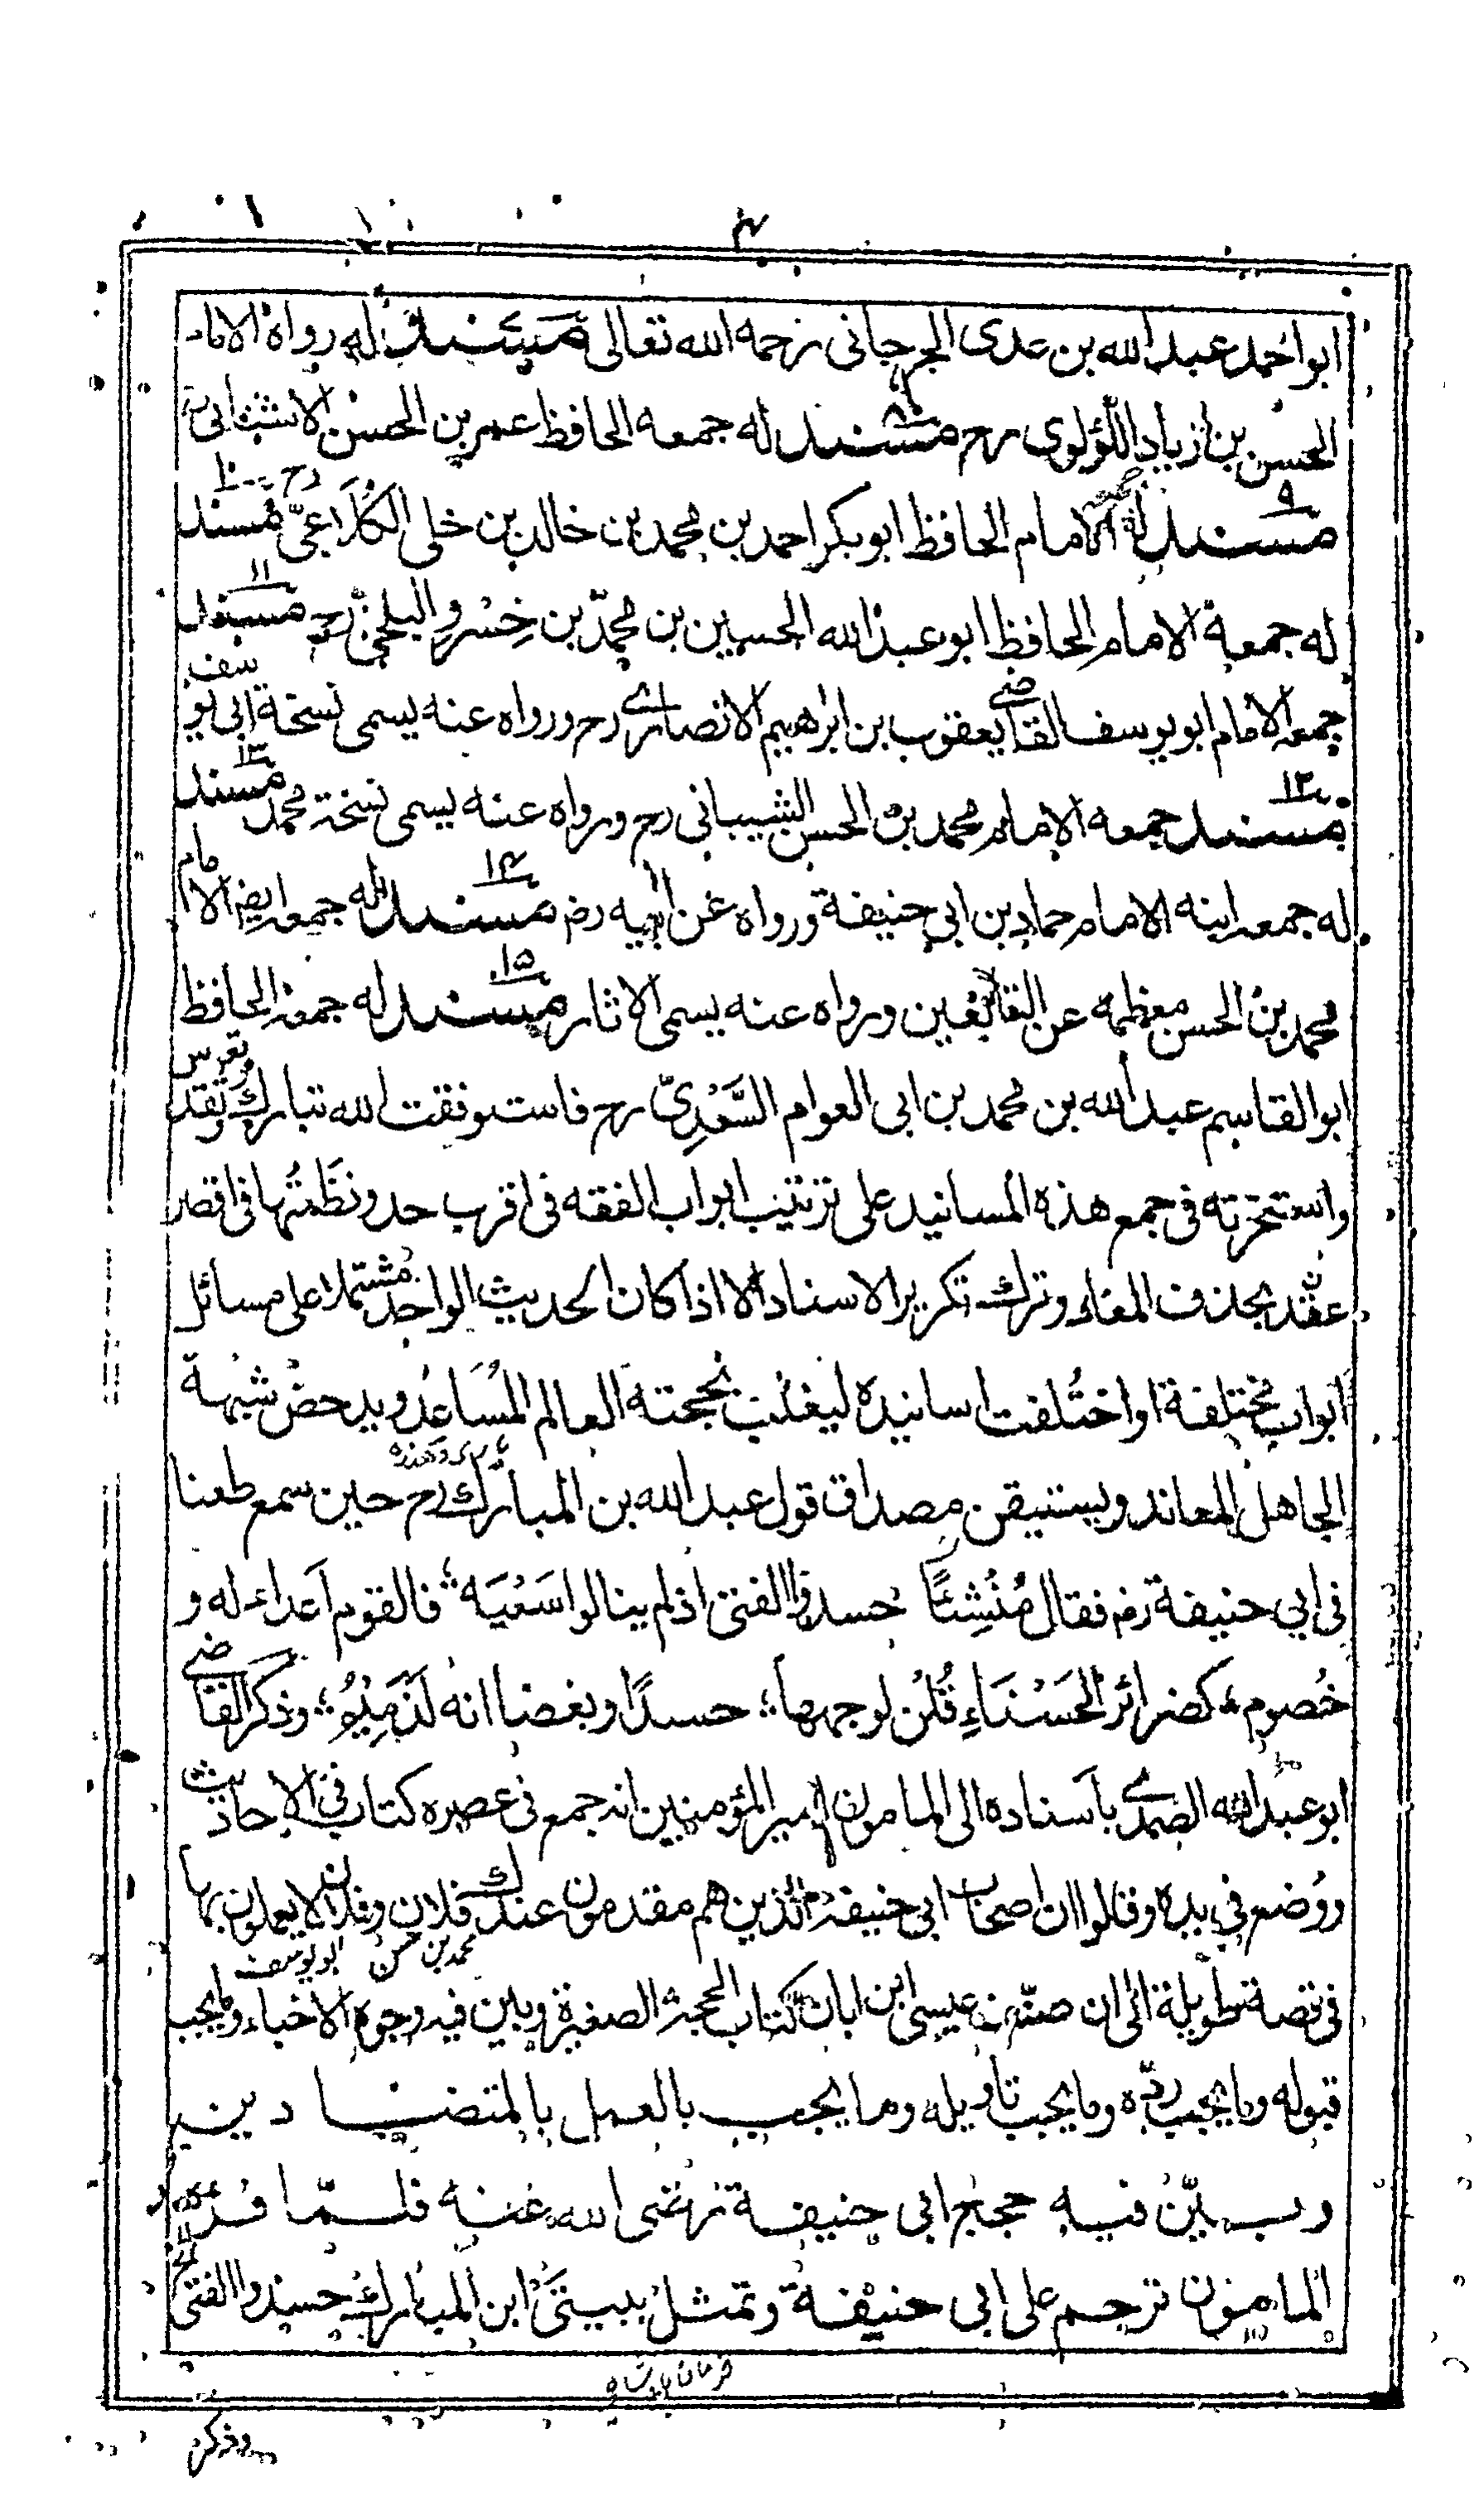 ۴
ابو احمد عبد الله بن عدى الجرجانى رحمه الله تعالى مسند له رواه الامام
الحسن بن زياد اللؤلوى رح مسند له جمعه الحافظ عمر بن الحسن الاشنانى
۹ مسند له الامام الحافظ ابو بكر احمد بن محمد بن خالد بن خلى الكلاعى رح ۱۰ مسند
له جمعة الامام الحافظ ابو عبد الله الحسين بن محمّد بن خسرو البلخى رح ۱۱ مسند
جمعه الامام ابو يوسف القاضى يعقوب بن ابراهيم الانصارى رح ورواه عنه يسمى نسخة ابى يوسف
۱۲ مسند جمعه الامام محمد بن الحسن الشيبانى رح ورواه عنه يسمى نسخة محمد ۱۳ مسند
له جمعه ابنه الامام حماد بن ابى حنيفة ورواه عن ابيه رض ۱۴ مسند له جمعه ايضا الامام
محمد بن الحسن معظمه عن التابعين ورواه عنه يسمى الاثار ۱۵ مسند له جمعه الحافظ
ابو القاسم عبد الله بن محمد بن ابى العوام السَّعْدِىّ رح فاستوفقت الله تبارك وتقدس
واستخرته فى جمع هذه المسانيد على ترتيب ابواب الفقه فى اقرب حد ونظَمْتُها فى اقصر
عقد بحذف المعاد وترك تكرير الاسناد الا اذا كان الحديث الواحد مشتملا على مسائل
ابواب مختلفة او اختلفت اسانيده ليغلب بحجته العالم المُسَاعِدُ ويدحض شبهة
الجاهل المعاند ويستيقن مصداق قول عبد الله بن المبارك رح حين سمع طعنا
فى ابى حنيفة رض فقال مُنْشِئًا حسدوا الفتى اذ لم ينالوا سَعْيَه ؛ فالقوم اعداء له و
خُصوم ؛ كضرائر الحَسْنَاءِ قُلْنَ لوجهها ؛ حسدًا وبغضا انه لَذَمِيْمُ ؛ وذكر القاضى
ابو عبد الله الصيمرى باسناده الى المامون امير المؤمنين انه جمع فى عصره كتاب فى الاحاديث
ووُضع فى يده وقالوا ان اصحاب ابى حنيفة الذين هم مقدمون عندك فلان وفلان لا يعملون بها
محمد بن حسن ابو يوسف
فى قصة طويلة الى ان صنّف عيسى ابن ابان كتاب الحجة الصغيرة وبين فيه وجوه الاخباء وما يجب
قبوله وما يجب ردّه وما يجب تاويله وما يجب بالعمل بالمتضادين
وبيّن فيه حجج ابى حنيفة رضى الله عنه فلمّا قرء
المامون ترحم على ابى حنيفة وتمثل ببيتَى ابن المبارك حسدوا الفتى الخ
وذكر